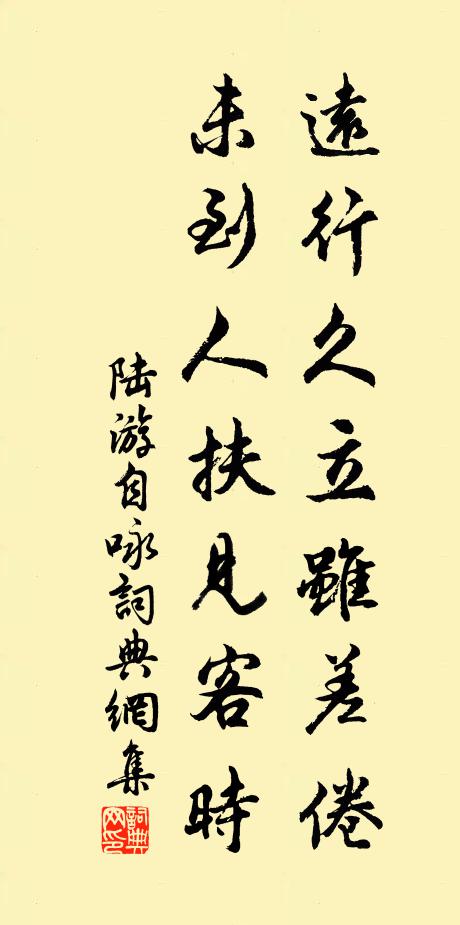 遠行久立雖差倦
未到人扶見客時
陆游自咏詞典網集
詞典
网印